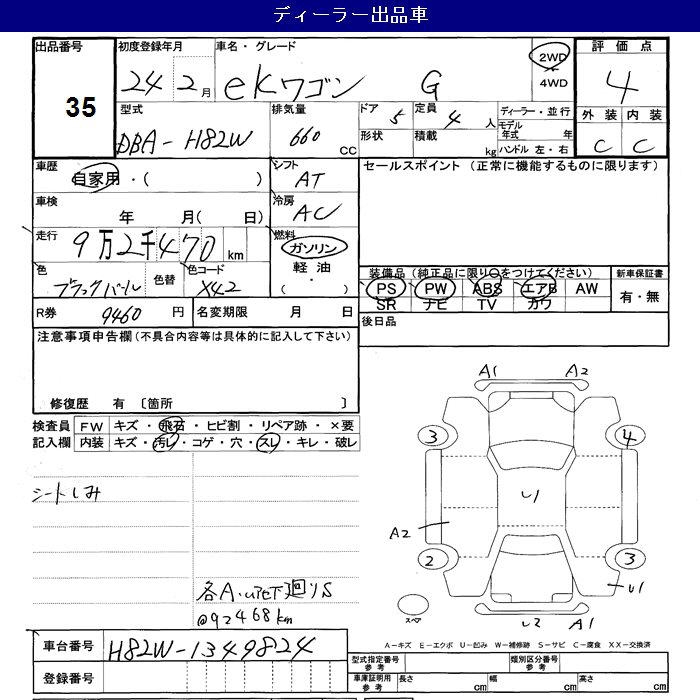 ディーラー出品車
出品番号
35
初度登録年月
24 2月
車名・グレード
ekワゴン G
2WD
4WD
評価点
4
型式
DBA-H82W
排気量
660 CC
ドア 5
形状
定員 4人
積載 kg
ディーラー・並行
モデル年式 年
ハンドル 左・右
外装 内装
C C
車歴
自家用・( )
シフト
AT
セールスポイント (正常に機能するものに限ります)
車検
年 月( 日)
冷房
AC
走行
9万2千470km
燃料
ガソリン
軽油
・( )
色
ブラックパール
色替
色コード
X42
装備品(純正品に限り○をつけてください)
PS PW ABS エアB AW
SR ナビ TV カワ
新車保証書
有・無
R券 9460 円
名変期限 月 日
後日品
注意事項申告欄(不具合内容等は具体的に記入して下さい)
修復歴 有 〔箇所 〕
検査員
記入欄
FW キズ・飛石・ヒビ割・リペア跡・×要
内装 キズ・汚レ・コゲ・穴・スレ・キレ・破レ
シートしみ
各A・U
下廻りS
@92468km
A1 A2
3 4
U1
A2
2 3
U1
スペア
U2 A1
A-キズ E-エクボ U-凹み W-補修跡 S-サビ C-腐食 XX-交換済
車台番号 H82W-1349824
登録番号
型式指定番号
参考
類別区分番号
参考
車庫証明用
参考
長さ cm
幅 cm
高さ cm